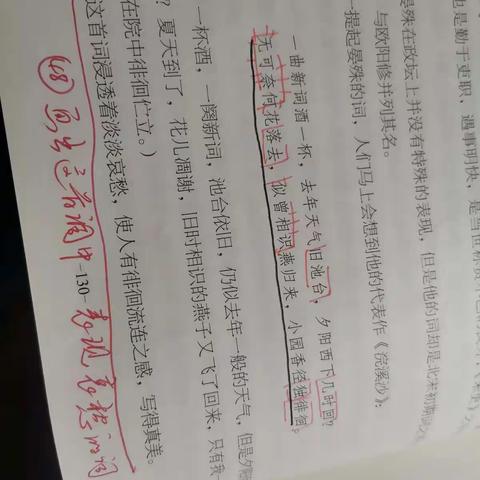 也是勤于吏职，遇事明快，是当世
晏殊在政坛上并没有特殊的表现，但是他的词却是北宋初期
与欧阳修并列其名。
一提起晏殊的词，人们马上会想到他的代表作《浣溪沙》：
一曲新词酒一杯，去年天气旧池台，夕阳西下几时回？
无可奈何花落去，似曾相识燕归来，小园香径独徘徊。
一杯酒，一阕新词，池台依旧，仍似去年一般的天气，但是夕阳
？夏天到了，花儿凋谢，旧时相识的燕子又飞了回来，只有我一
在院中徘徊伫立。）
这首词浸透着淡淡哀愁，使人有徘徊流连之感，写得真美。
-130-
48 写出这首词中表现哀愁的词